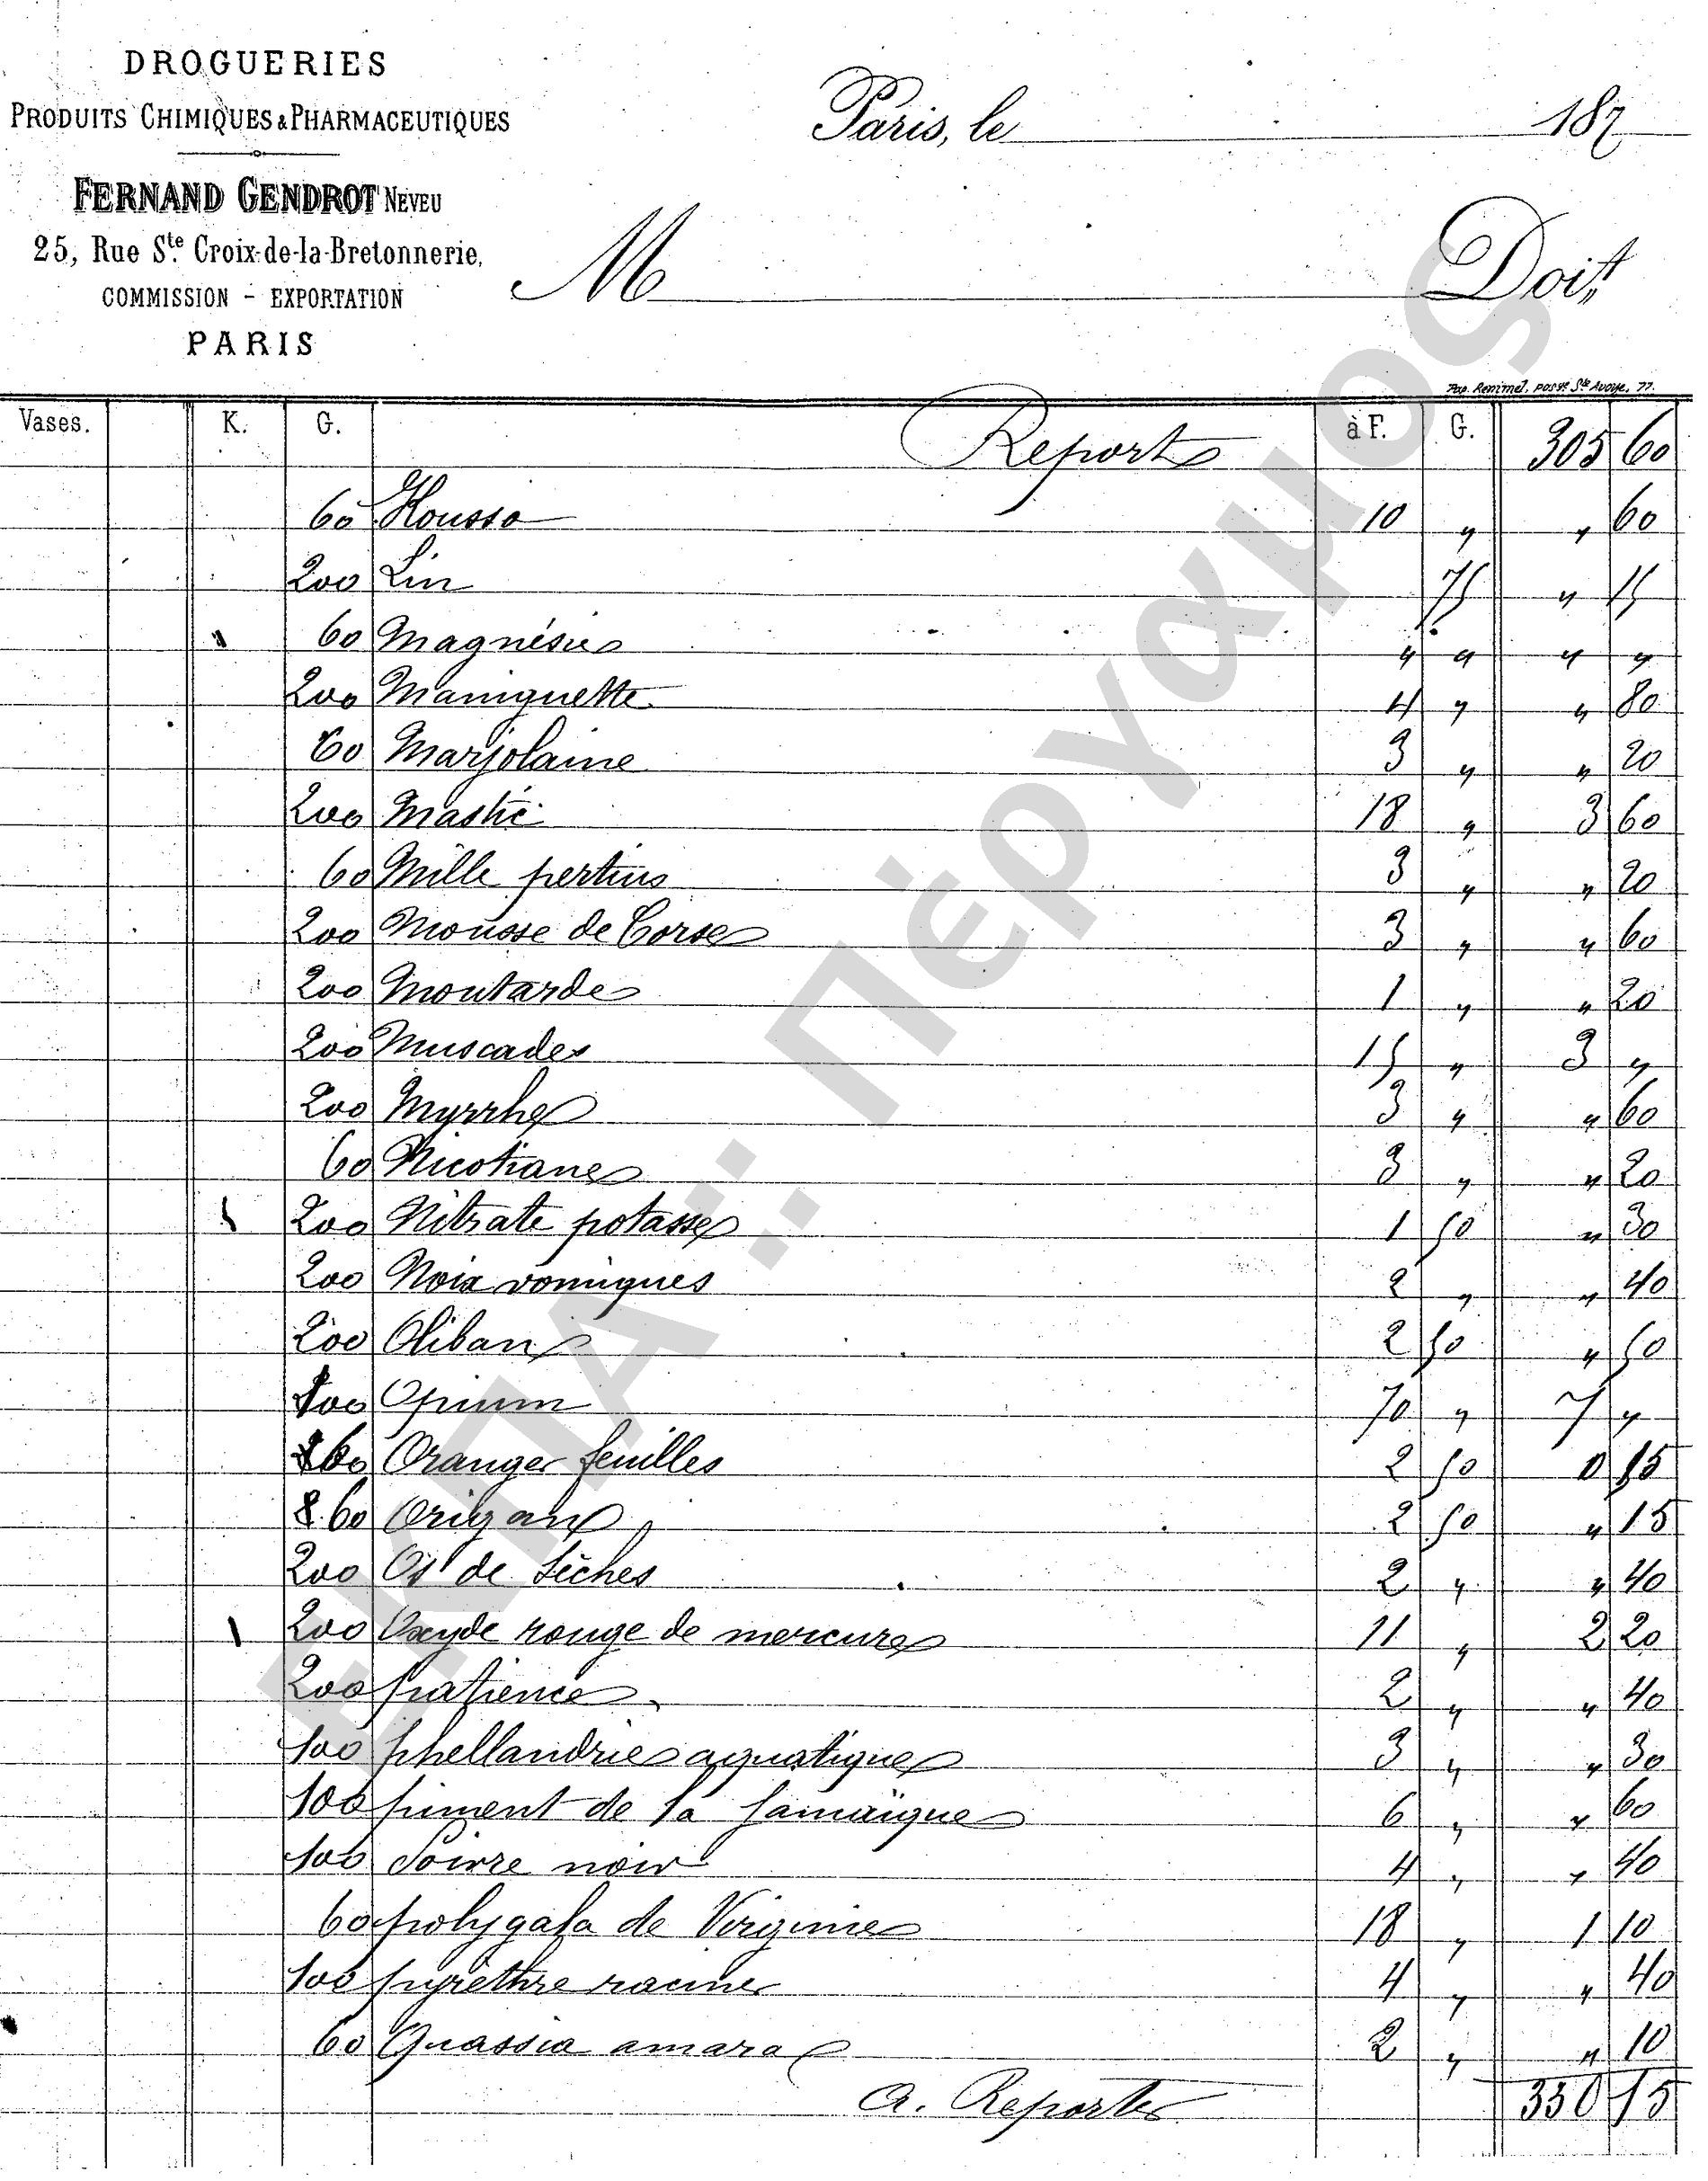 DROGUERIES
PRODUITS CHIMIQUES & PHARMACEUTIQUES
FERNAND GENDROT NEVEU
25, Rue Ste Croix-de-la-Bretonnerie,
COMMISSION - EXPORTATION
PARIS
Paris, le 187
M Doit
Pap. Remmel, passge Ste Avoye, 77.
Vases. K. G. Report à F. G. 305 60
60 Kousso 10 " " 60
200 Lin 75 " 15
" 60 Magnésie " " " "
200 Maniguette 4 " " 80
60 Marjolaine 3 " " 20
200 Mastic 18 " 3 60
60 Mille pertuis 3 " " 20
200 Mousse de Corse 3 " " 60
200 Moutarde 1 " " 20
200 Muscades 15 " 3 "
200 Myrrhe 3 " " 60
60 Nicotiane 3 " " 20
200 Nitrate potasse 1 50 " 30
200 Noix vomiques 2 " " 40
200 Oliban 2 50 " 50
100 Opium 70 " 7 "
60 Oranger feuilles 2 50 0 15
60 Origan 2 50 " 15
200 Os de Sèches 2 " " 40
200 Oxyde rouge de mercure 11 " 2 20
200 patience 2 " " 40
100 phellandrie aquatique 3 " " 30
100 piment de la Jamaïque 6 " " 60
100 Poivre noir 4 " " 40
60 polygala de Virginie 18 " 1 10
100 pyrèthre racine 4 " " 40
60 Quassia amara 2 " " 10
A. Reporter 330 15
ΕΚΠΑ: Πέργαμος